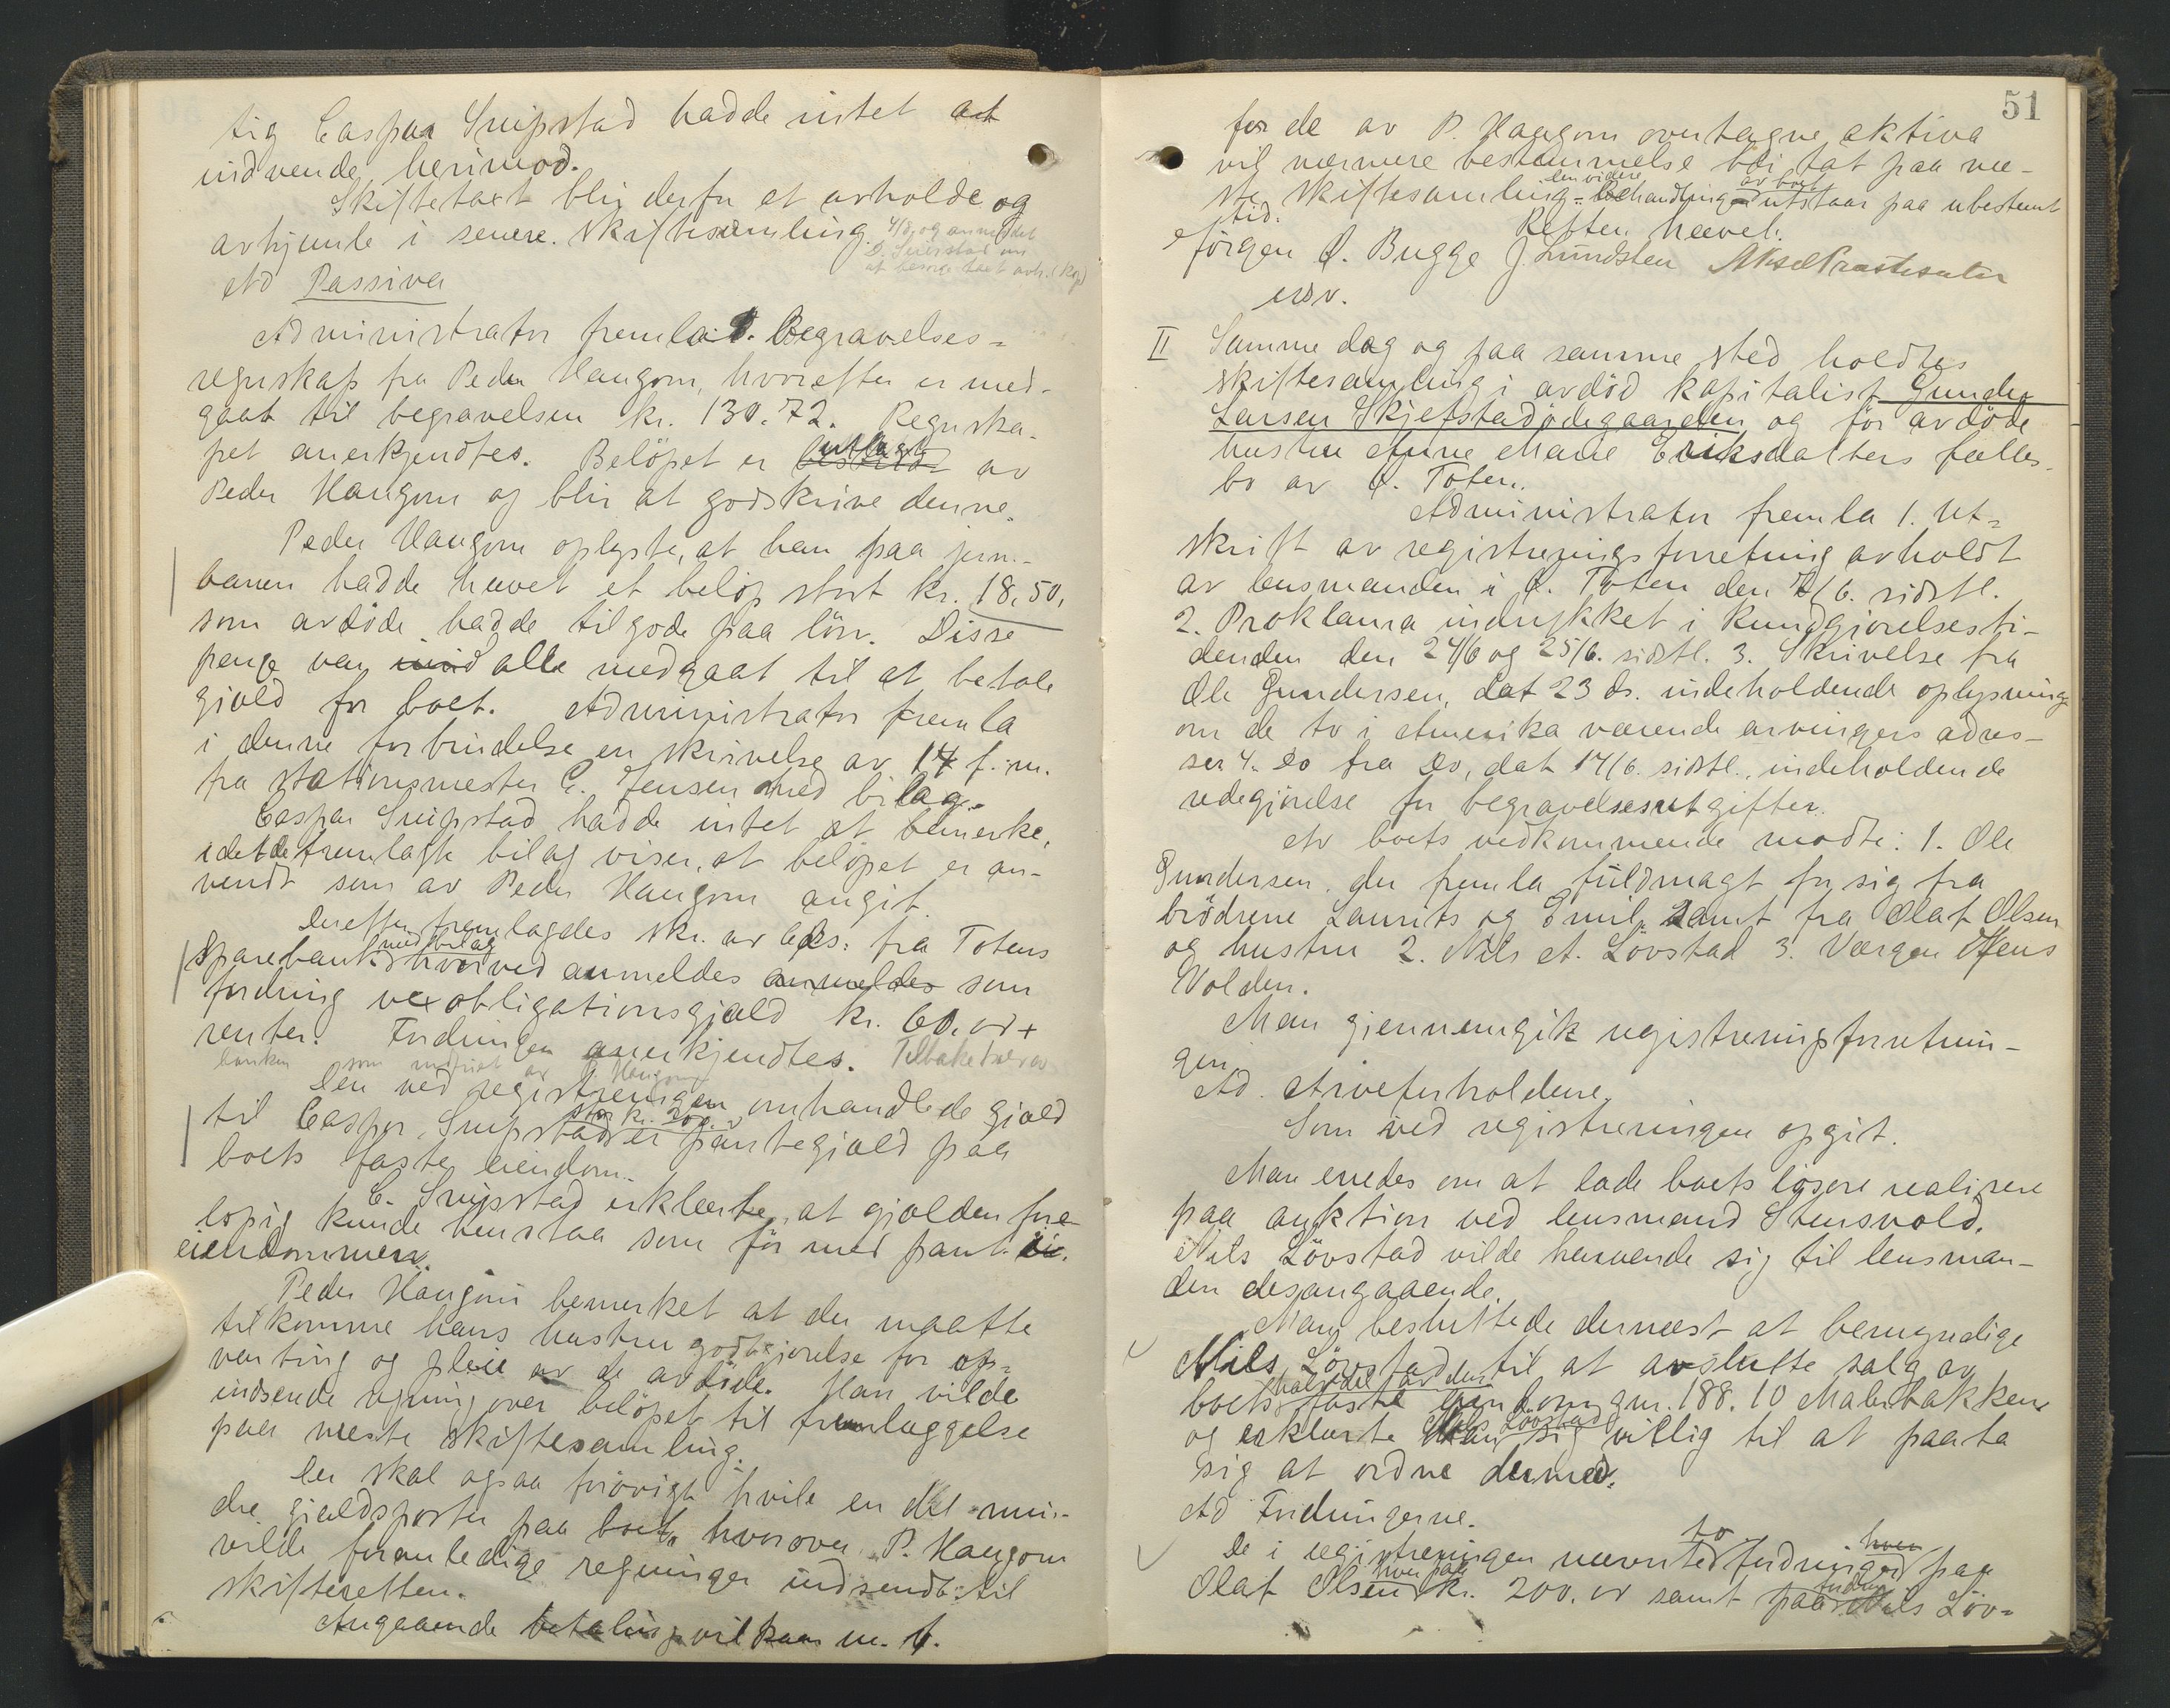 tig Caspar Snipstad hadde intet at
indvende herimod.
Skiftetaxt blir derfor at avholde og
avhjemle i senere skiftesamling.
Ad Passiva
Administrator fremla: Begravelses=
regnskap fra Peder Haugom, hvorefter er med-
gaat til begravelsen kr. 130.72. Regnska-
pet anerkjendtes. Beløpet er utlagt av
Peder Haugom og blir at godskrive denne.
Peder Haugom oplyste, at han paa jern-
banen hadde hævet et beløp stort kr. 18,50,
som avdøde hadde tilgode paa lön. Disse
penge var alle medgaat til at betale
gjæld for boet. Administrator fremla
i denne forbindelse en skrivelse av 14 f.m.
fra stationsmester C. Jensen med bilag.
Caspar Snipstad hadde intet at bemerke,
idet de fremlagte bilag viser, at beløpet er an-
vendt som av Peder Haugom angit.
Derefter fremlagdes skr. av fra Totens
Sparebank med bilag hvorved anmeldes anmeldes som
fordring obligationsgjæld kr. 60.00 +
renter. Fordringen anerkjendtes. Tilbaketales av
banken som av P. Haugom
Den ved registreringen omhandlede gjæld
til Caspar Snipstad stor kr. 200. er pantegjæld paa
boets faste eiendom.
C. Snipstad erklærte, at gjælden fore-
løpig kunde henstaa som før med pant i
eiendommen.
Peder Haugom bemerket at der maatte
tilkomme hans hustru godtgjørelse for op-
varting og pleie av de avdöde. Han vilde
indsende regning over beløpet til fremlæggelse
paa næste skiftesamling.
Der skal ogsaa forøvrigt hvile en del min-
dre gjældsposter paa boet, hvorover P. Haugom
vilde foranledige regninger indsendt til
skifteretten.
Angaaende betalingsvilkaar m. v.
51
for de av P. Haugom overtagne aktiva
vil nærmere bestemmelse bli tat paa næ-
ste skiftesamling. den videre Behandling av boet utstaar paa ubestemt
tid.
Retten hævet.
Jørgen Ø. Bugge J. Lundsten Aksel Præstesæter
edsv.
II Samme dag og paa samme sted holdtes
skiftesamling i avdöd kapitalist Gunder
Larsen Skjefstadødegaarden og før avdöde
hustru Anne Marie Eriksdatters fælles-
bo av Ø. Toten.
Administrator fremla 1. Ut=
skrift av registreringsforretning avholdt
av lensmanden i Ø. Toten den 7/6. sidstl.
2. Proklama indrykket i Kundgjørelsesti-
denden den 24/6 og 25/6. sidstl. 3. Skrivelse fra
Ole Gundersen, dat 23 ds. indeholdende oplysning
om de to i Amerika værende arvingers adres-
ser 4. Do fra Do, dat 14/6. sidstl., indeholdende
redegjørelse for begravelsesutgifter.
Av boets vedkommende mødte: 1. Ole
Gundersen, der fremla fuldmagt for sig fra
brödrene Laurits og Emil, samt fra Olaf Olsen
og hustru 2. Nils A. Lövstad 3. Værgen Jens
Volden.
Man gjennemgik registreringsforretnin-
gen.
Ad. Arveforholdene.
Som ved registreringen opgit.
Man enedes om at lade boets løsøre realisere
paa auktion ved lensmand Stensvold.
Nils Lövstad vilde henvende sig til lensman-
den desangaaende.
Man besluttede dernæst at bemyndige
Nils Lövstad til at avslutte salg av
boets halvdel av den faste eiendom gnr. 188. 10 Malerbakken
og erklærte Nils Lövstad sig villig til at paata
sig at ordne dermed.
Ad Fordringerne.
De i registreringen nævnte to fordringer paa
Olaf Olsen hver paa kr. 200.00 samt paa Nils Löv=